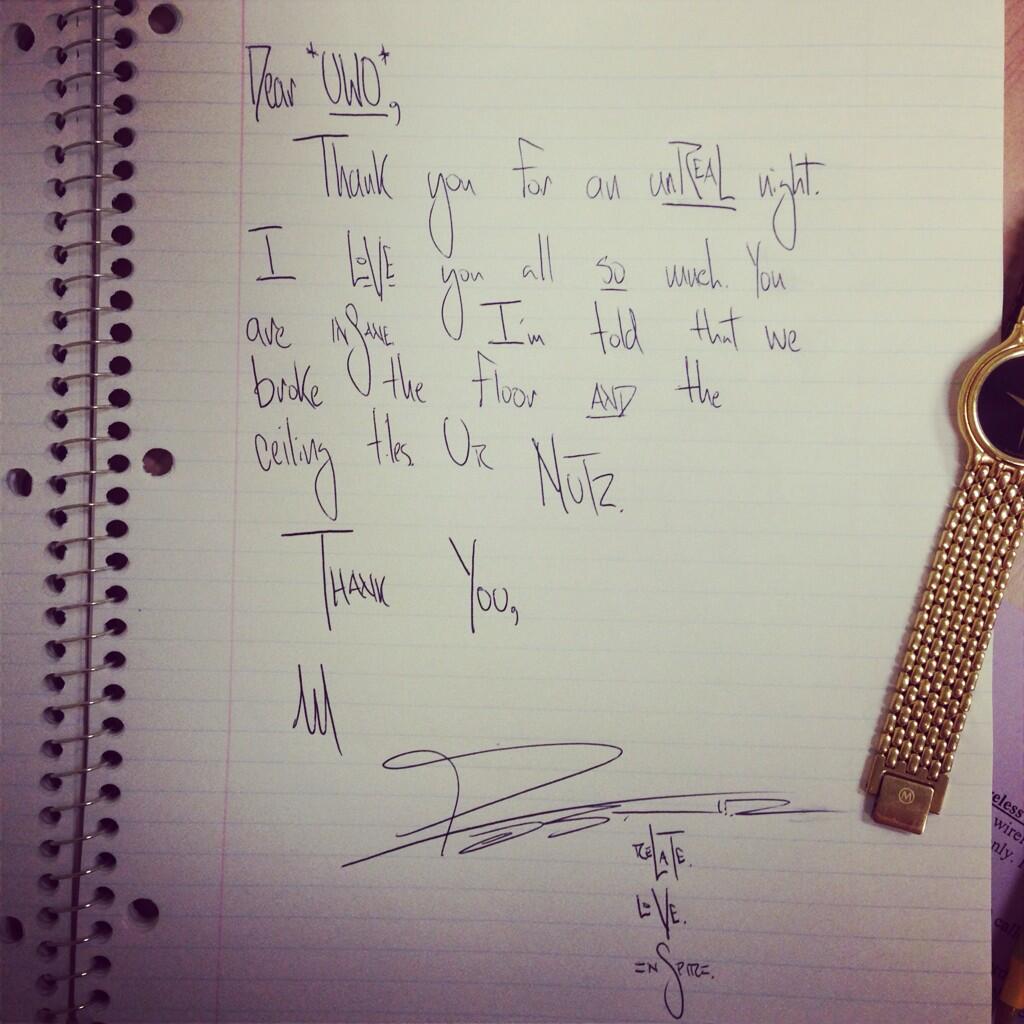 Dear *UWO*,
Thank you for an unREAL night.
I LOVE you all so much. You
are INSANE. I'm told that we
broke the floor AND the
ceiling tiles. Ur NUTZ.
THANK YOU,
RELATE.
LOVE.
ENSPIRE.
M
eless
wire
nly.
call